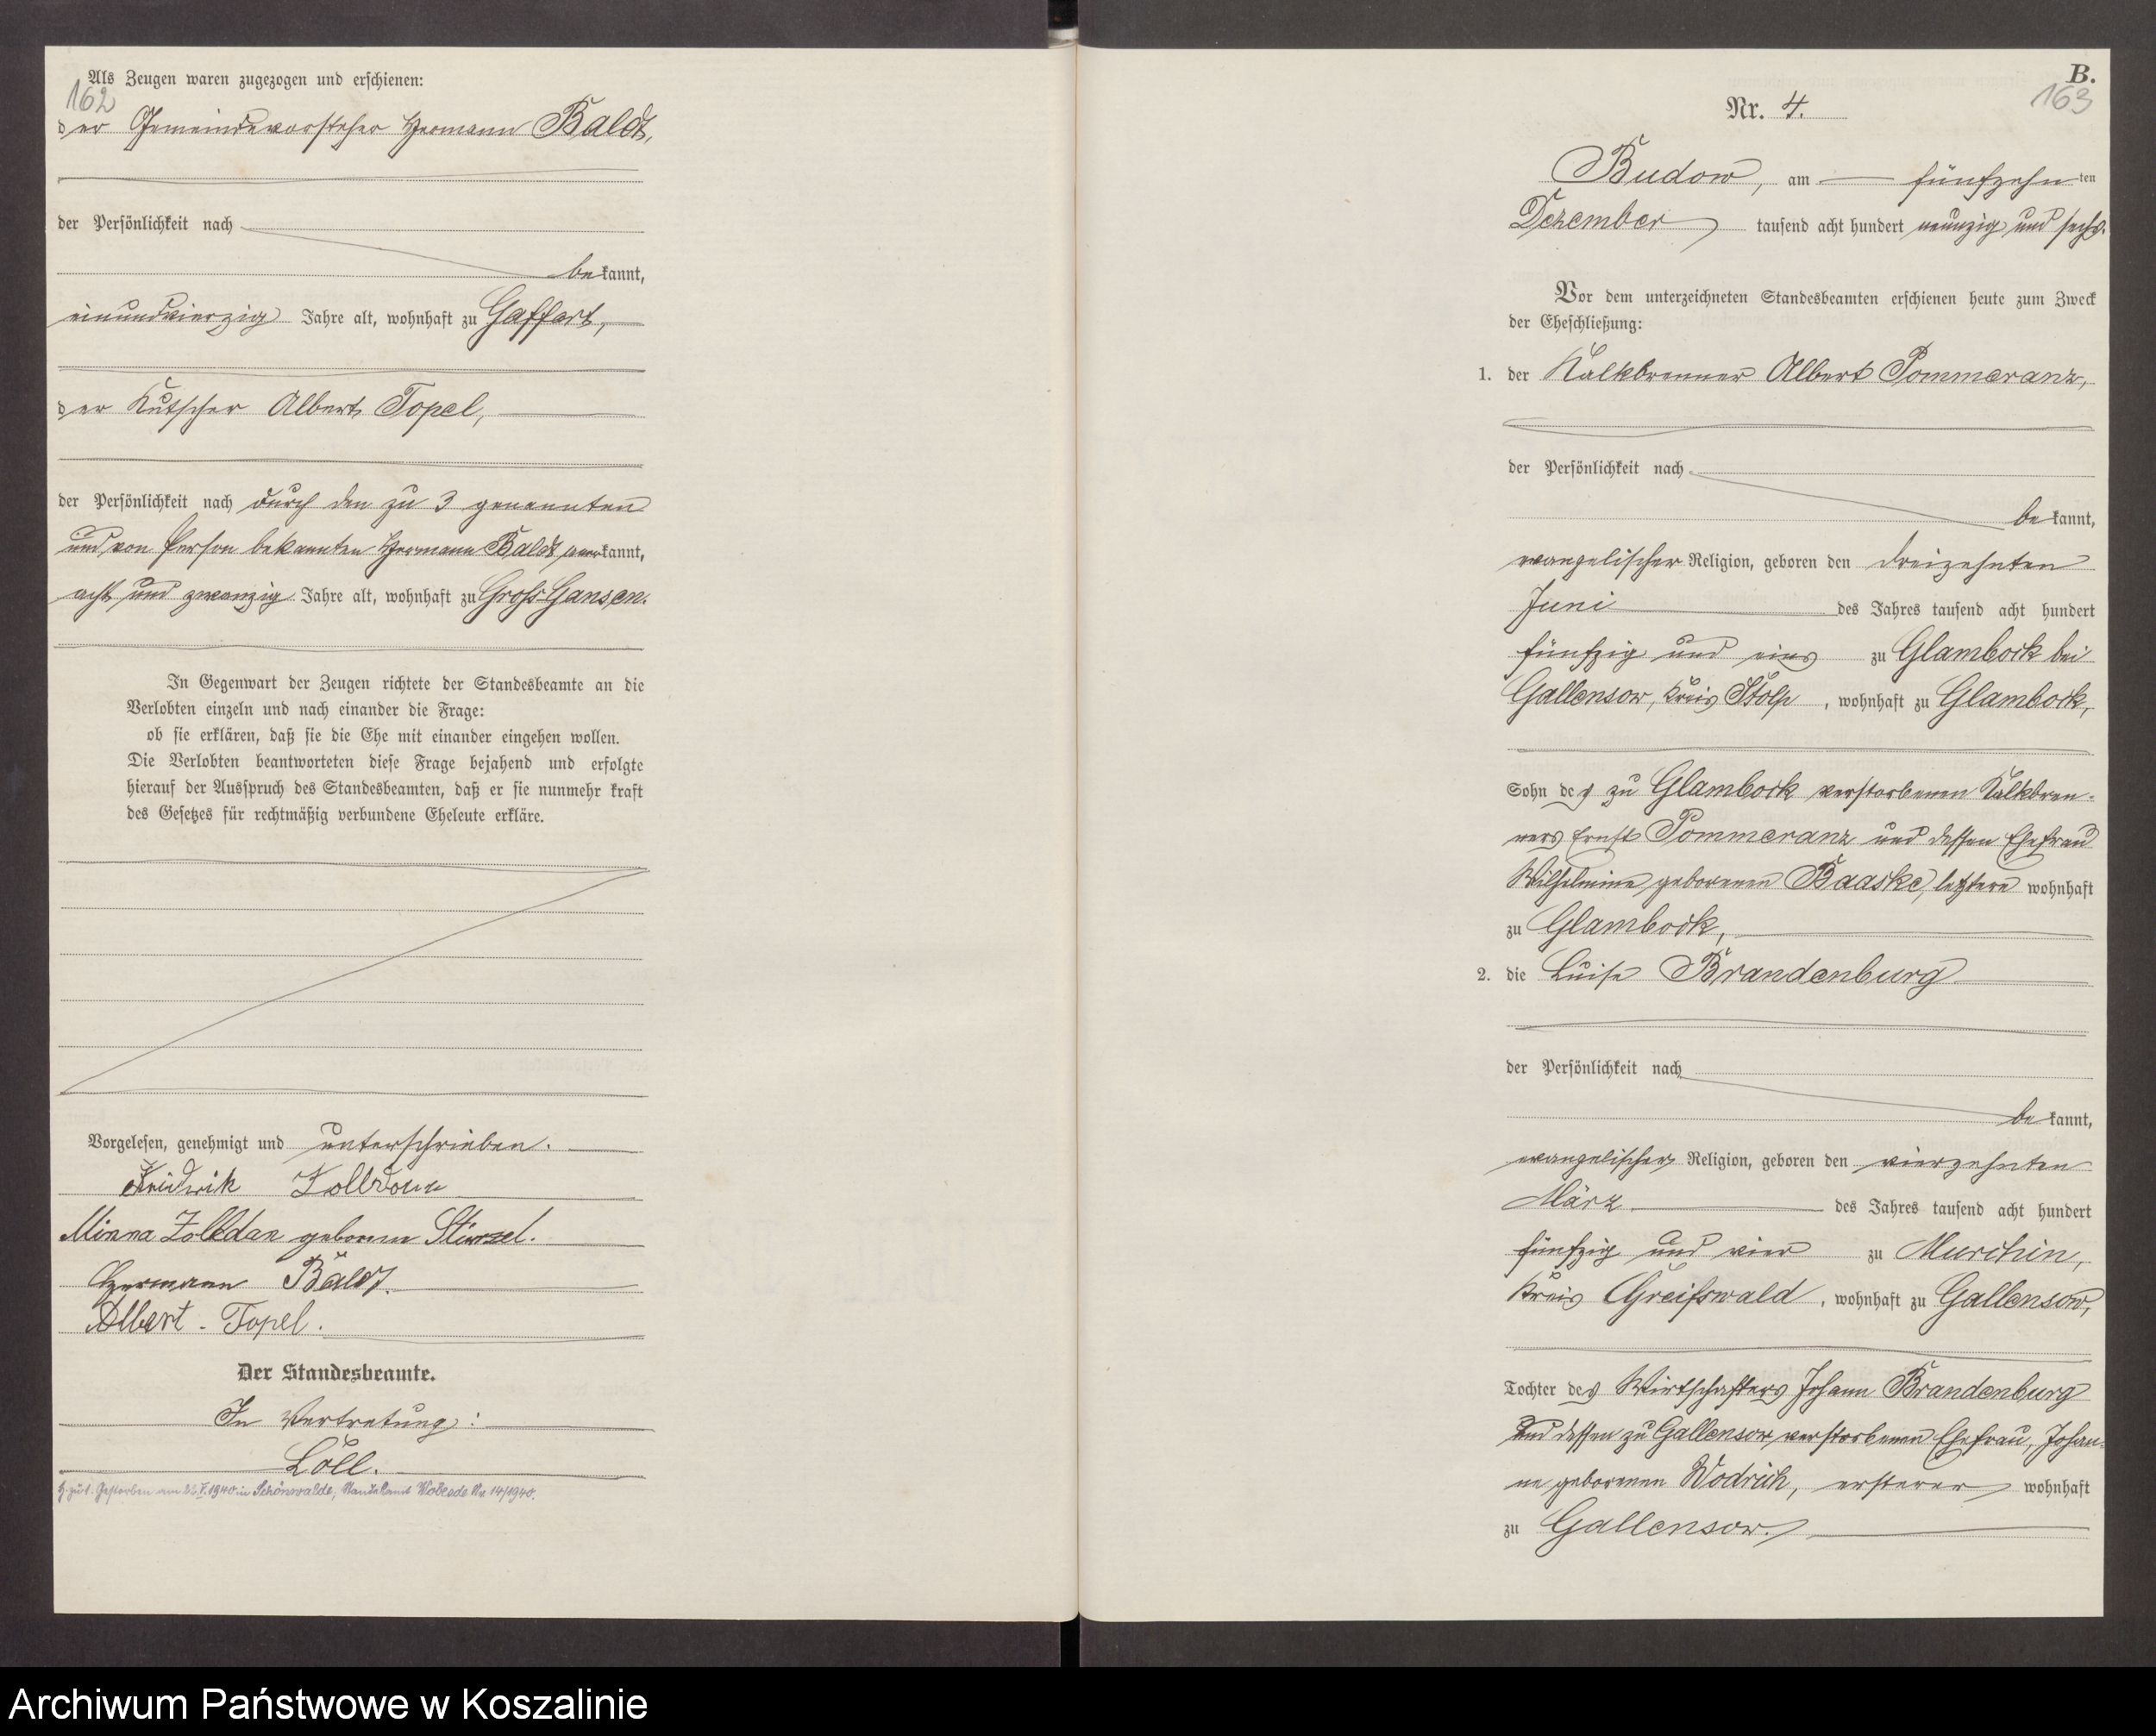 Als Zeugen waren zugezogen und erschienen:
162
der Gemeindevorsteher Hermann Baldt,
der Persönlichkeit nach
bekannt,
einundvierzig Jahre alt, wohnhaft zu Gaffert,
der Kutscher Albert Topel,
der Persönlichkeit nach durch den zu 3 genannten
und von Person bekannten Hermann Baldt anerkannt,
acht und zwanzig Jahre alt, wohnhaft zu Groß Gansen.
In Gegenwart der Zeugen richtete der Standesbeamte an die
Verlobten einzeln und nach einander die Frage:
ob sie erklären, daß sie die Ehe mit einander eingehen wollen.
Die Verlobten beantworteten diese Frage bejahend und erfolgte
hierauf der Ausspruch des Standesbeamten, daß er sie nunmehr kraft
des Gesetzes für rechtmäßig verbundene Eheleute erkläre.
Vorgelesen, genehmigt und unterschrieben.
Minna Zolldan geborene Stürzel.
Hermann Baldt.
Albert Topel.
Der Standesbeamte.
In Vertretung:
Löll.
Gestorben am 1940 in Schönwalde, Standesamt Nr 14/1940.
B.
163
Nr. 4.
Budow, am fünfzehnten
Dezember tausend acht hundert neunzig und sechs.
Vor dem unterzeichneten Standesbeamten erschienen heute zum Zweck
der Eheschließung:
1. der Kalkbrenner Albert Pommeranz,
der Persönlichkeit nach
bekannt,
evangelischer Religion, geboren den dreizehnten
Juni des Jahres tausend acht hundert
fünfzig und eins zu Glambock bei
Gallensow, Kreis Stolp, wohnhaft zu Glambock,
Sohn des zu Glambock verstorbenen Kalkbren-
ners Ernst Pommeranz und dessen Ehefrau
Wilhelmine geborenen Baaske, letztere wohnhaft
zu Glambock,
2. die Luise Brandenburg
der Persönlichkeit nach
bekannt,
evangelischer Religion, geboren den vierzehnten
März des Jahres tausend acht hundert
fünfzig und vier zu Murchin,
Kreis Greifswald, wohnhaft zu Gallensow,
Tochter des Wirtschafters Johann Brandenburg
und dessen zu Gallensow verstorbenen Ehefrau, Johan-
ne geborenen Wodrich, ersterer wohnhaft
zu Gallensow.
Archiwum Państwowe w Koszalinie